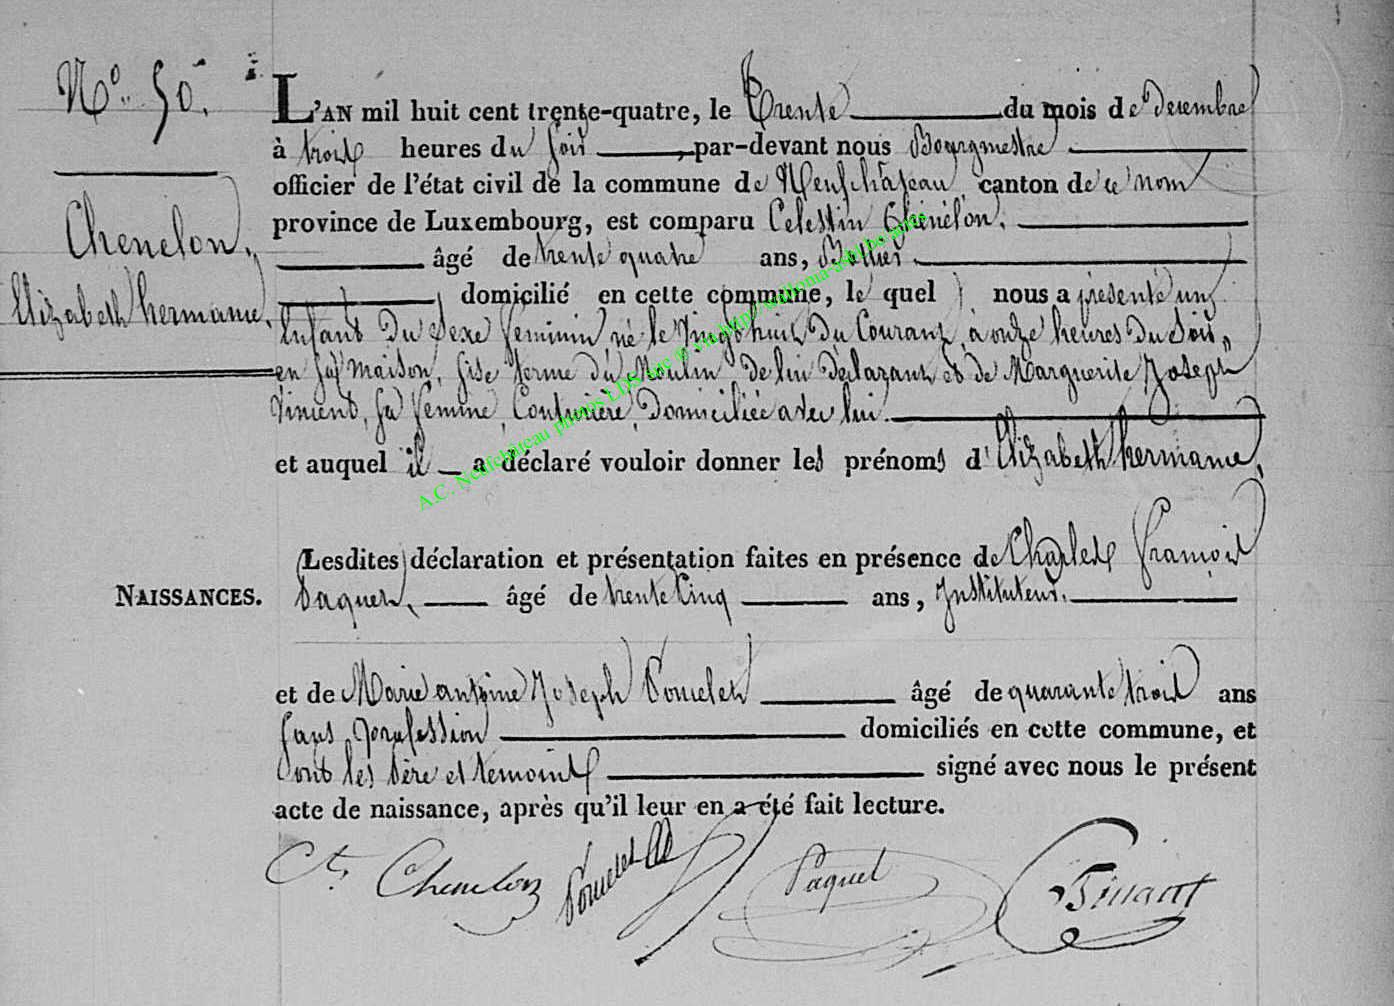 N° 50.
L'AN mil huit cent trente-quatre, le Trente du mois de Decembre
à trois heures du soir, par-devant nous Bourgmestre
officier de l'état civil de la commune de Neufchateau canton de ce nom
Chenelon,
province de Luxembourg, est comparu Celestin Chénélon,
âgé de trente quatre ans,
Elizabeth hermance,
domicilié en cette commune, le quel nous a présenté un
Enfant Du Sexe feminin né le Vingt huit Du Courant, à onze heures Du Soir,
en sa maison, sise ferme du Moulin De lui Déclarant et de Marguerite Joseph
Vincent, sa femme, Couturière, Domiciliée avec lui
et auquel il a déclaré vouloir donner les prénoms d'Elizabeth hermance,
Lesdites déclaration et présentation faites en présence de Charles François
NAISSANCES.
Paquet, âgé de trente Cinq ans, Instituteur.
et de Marie antoine Joseph Poncelet âgé de quarante trois ans
sans profession domiciliés en cette commune, et
ont les Père et temoins signé avec nous le présent
acte de naissance, après qu'il leur en a été fait lecture.
Ct. Chenelon Poncelet Paquet
A.C. Neufchâteau photos LDS